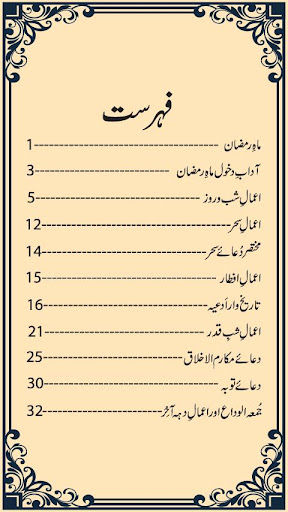 فہرست
ماہِ رمضان ---------------------------------------- 1
آدابِ دخول ماہِ رمضان ------------------------------ 3
اعمالِ شب و روز ------------------------------------ 5
اعمالِ سحر ----------------------------------------- 12
مختصر دُعائے سحر ------------------------------------ 14
اعمالِ افطار --------------------------------------- 15
تاریخ وار ادعیہ ------------------------------------ 16
اعمالِ شبِ قدر ------------------------------------- 21
دعائے مکارم الاخلاق -------------------------------- 25
دعائے توبہ ----------------------------------------- 30
جُمعہ الوداع اور اعمالِ دہہ آخر ------------------------ 32